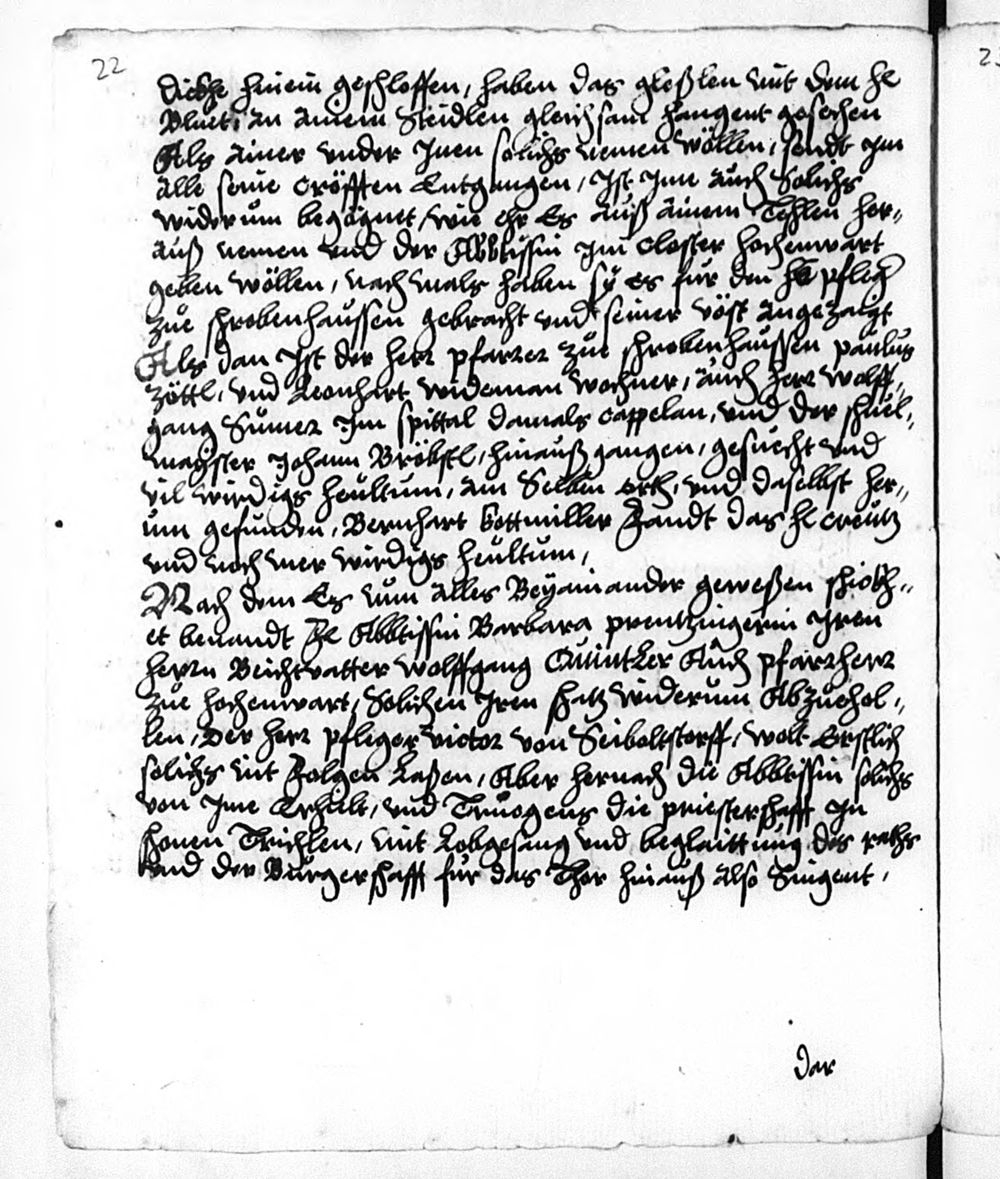 22
dickhe hinein geschloffen, haben das gleßlen mit dem hl
Bluet, an ainem Steidlen gleichsam hangent gesechen
Als ainer vnder Inen solichs nemen wöllen, sendt Im
alle seine Cröfften Entgangen, Ist Ime auch Solichs
widerum begögnet, wie ehr Es auß ainem Tehlen her„
auß nemen vnd der Abbtissin Im Closter hochenwart
geben wöllen, nachmals haben sy Es für den H pfleger
zue schrobenhaussen gebracht vnd seiner vöst angezaigt
Als dan Ist der herr pfarrer zue schrobenhaussen paulus
Zöttl, vnd Leonhart wideman wochner, auch herr wolff„
gang Sumer Im spittal damals cappelan, vnd der schuel„
maister Johann Bröbstl, hinauß gangen, gesuecht vnd
vil wirdigs heultum, am Selben orth, vnd daselbst her„
um gefunden, Bernhart Gottmiller Fandt das hl Creutz
vnd noch mer wirdigs heultum,
Nach dem Es num alles Beyainander geweßen schickh„
et benandt Fr Abbtissin Barbara prentzingerin Iren
herrn Beichtvatter wolffgang Quintzer Auch pfarrherr
zue hochenwart, Solichen Iren schatz widerum Abzuehol„
len, Der herr pfleger victor von Seiboltstorff, wolt Erstlich
solichs nit Folgen Laßen, Aber hernach die Abbtissin solichs
von Ime Erhielt, vnd Truogens die priesterschafft In
schonen Trüchlen, mit Lobgesang vnd beglaittung des raths
vnd der Burgerschafft für das Thor hinauß also Singent,
dar